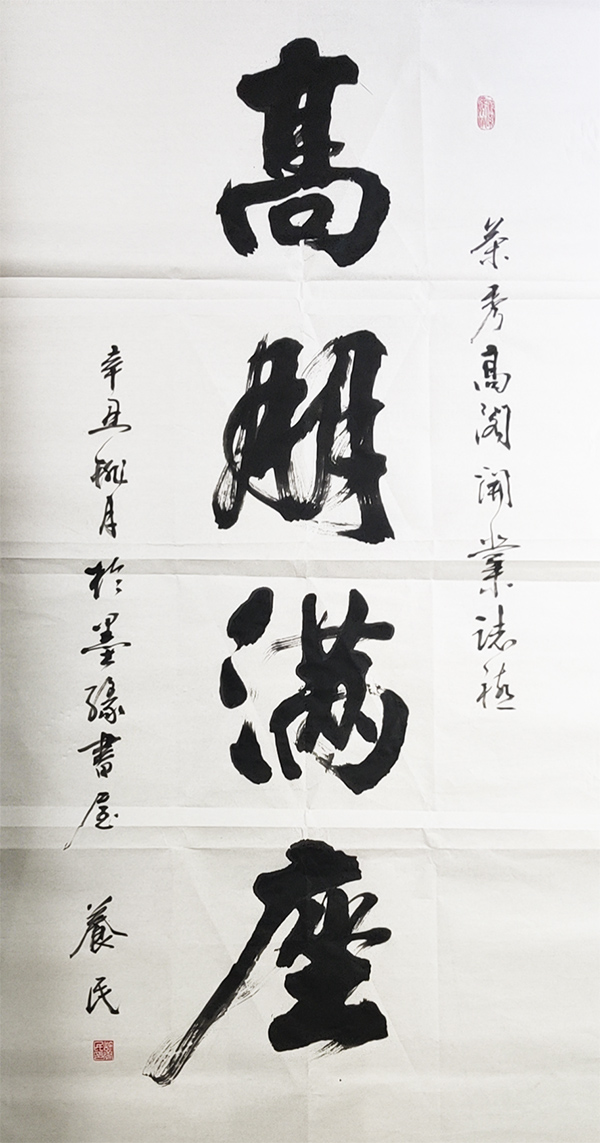 荣秀高阁開業誌禧
髙朋满座
辛丑桃月於墨緣書屋
養民